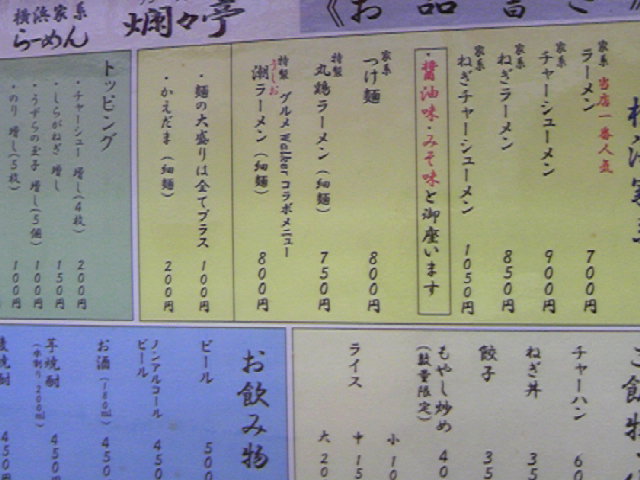 横浜家系
らーめん
爛々亭
《お品書き》
家系
ラーメン
当店一番人気
700円
家系
チャーシューメン
900円
家系
ねぎラーメン
850円
家系
ねぎチャーシューメン
1050円
・醤油味・みそ味と御座います
家系
つけ麺
800円
特製
丸鶏ラーメン(細麺)
750円
特製
グルメWalkerコラボメニュー
うしお
潮ラーメン(細麺)
800円
・麺の大盛りは全てプラス
100円
・かえだま(細麺)
200円
トッピング
・チャーシュー 増し(4枚)
200円
・しらがねぎ 増し
150円
・うずらの玉子 増し(5個)
100円
・のり 増し(5枚)
100円
ご飯物
チャーハン
60
ねぎ丼
35
餃子
35
もやし炒め
(数量限定)
40
ライス
小 10
中 15
大 20
お飲み物
ビール
500
ノンアルコール
ビール
450
お酒(180ml)
450円
芋焼酎
(水割り200ml)
450円
焼酎
450円